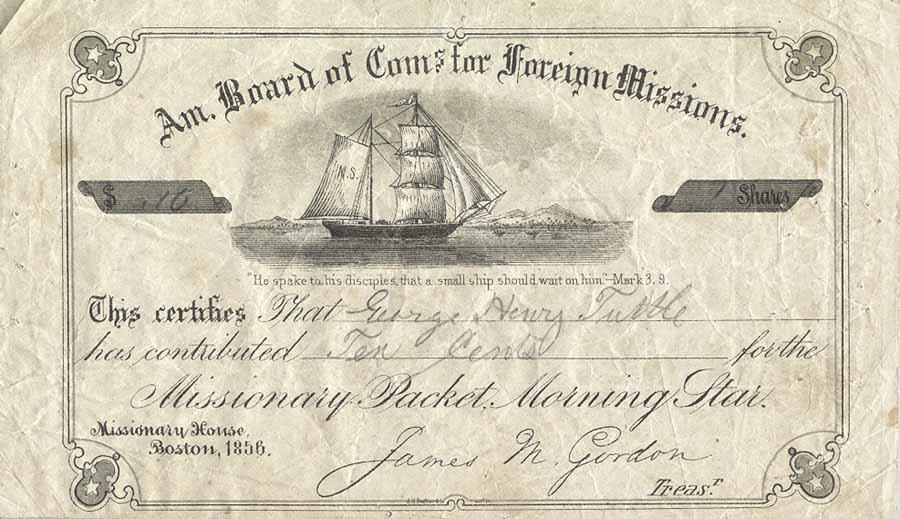 Am. Board of Com.s for Foreign Missions.
M.S.
$ .10
1 Shares
"He spake to his disciples, that a small ship should wait on him."—Mark 3.9.
This certifies That George Henry Tuttle
has contributed Ten Cents for the
Missionary Packet, Morning Star.
Missionary House,
Boston, 1856.
James M. Gordon
Treas.r